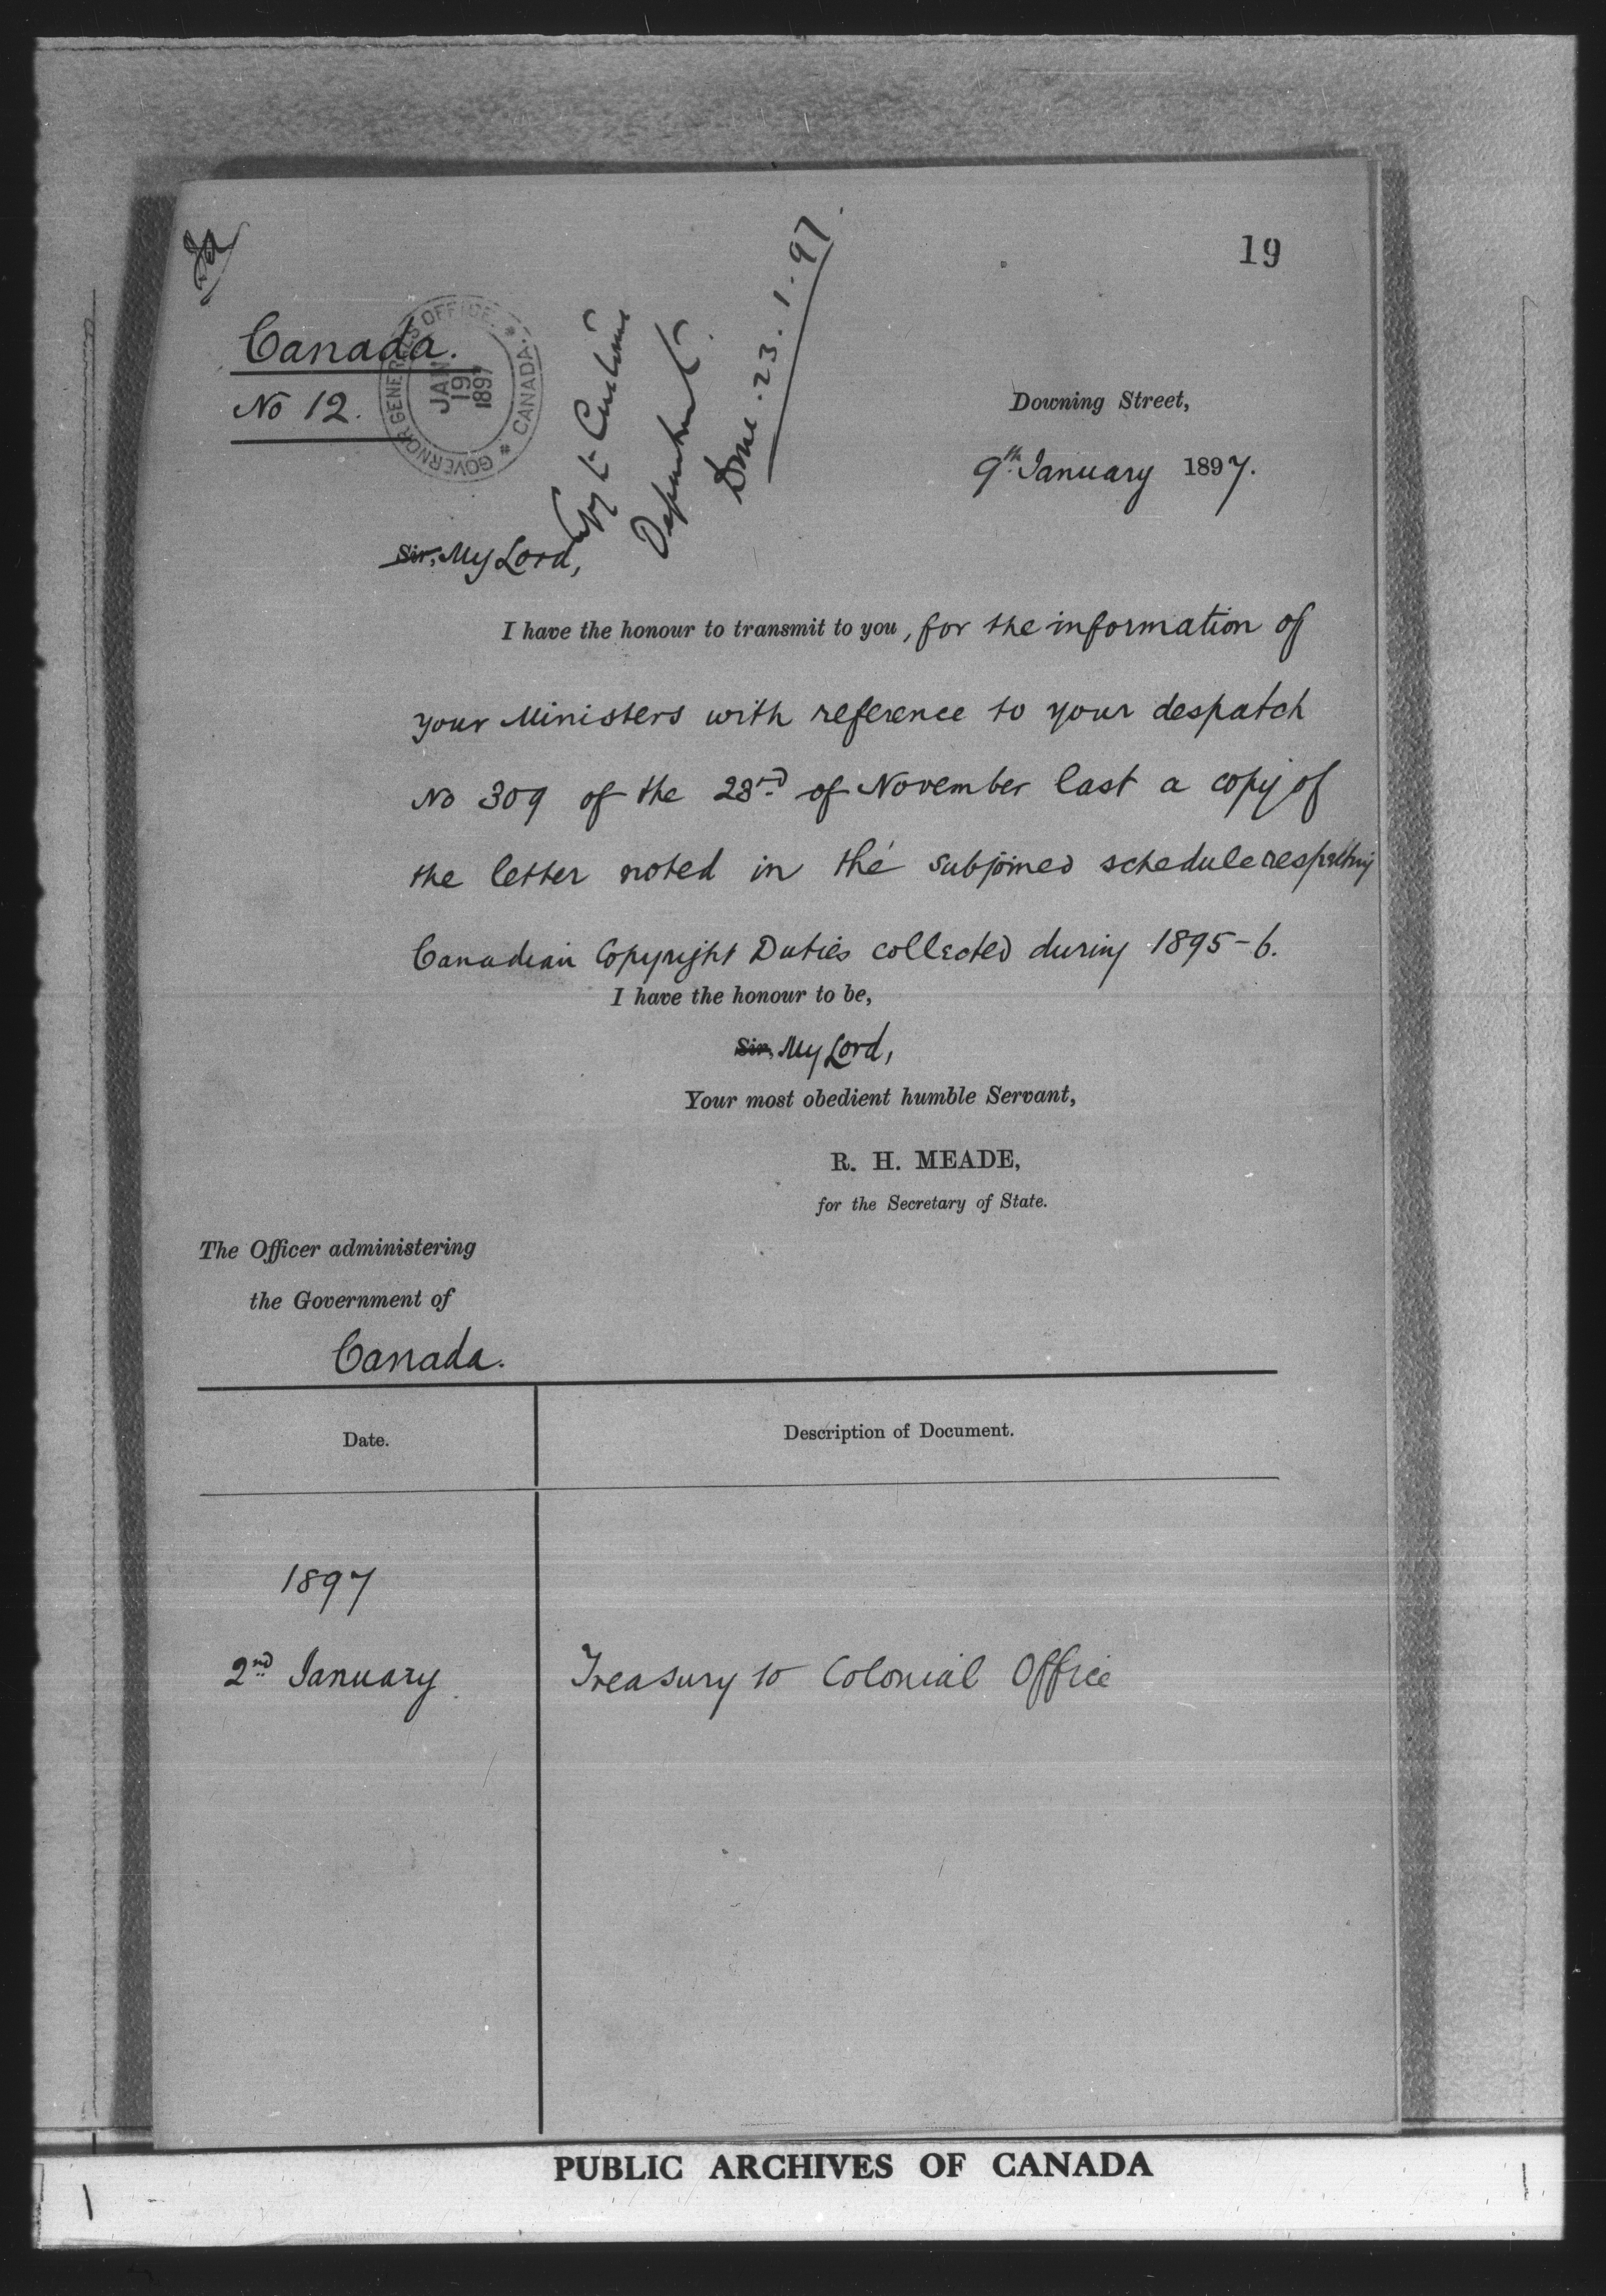 19
Canada.
No 12.
GOVERNOR GENERAL'S OFFICE. * CANADA. *
JAN
19
1897
Copy to Customs
Department.
Done. 23. 1. 97
Downing Street,
9th January 1897.
Sir, My Lord,
I have the honour to transmit to you, for the information of
your Ministers with reference to your despatch
No 309 of the 23rd of November last a copy of
the letter noted in the subjoined schedule respecting
Canadian Copyright Duties collected during 1895-6.
I have the honour to be,
Sir, My Lord,
Your most obedient humble Servant,
R. H. MEADE,
for the Secretary of State.
The Officer administering
the Government of
Canada.
Date.
Description of Document.
1897
2nd January
Treasury to Colonial Office
PUBLIC ARCHIVES OF CANADA